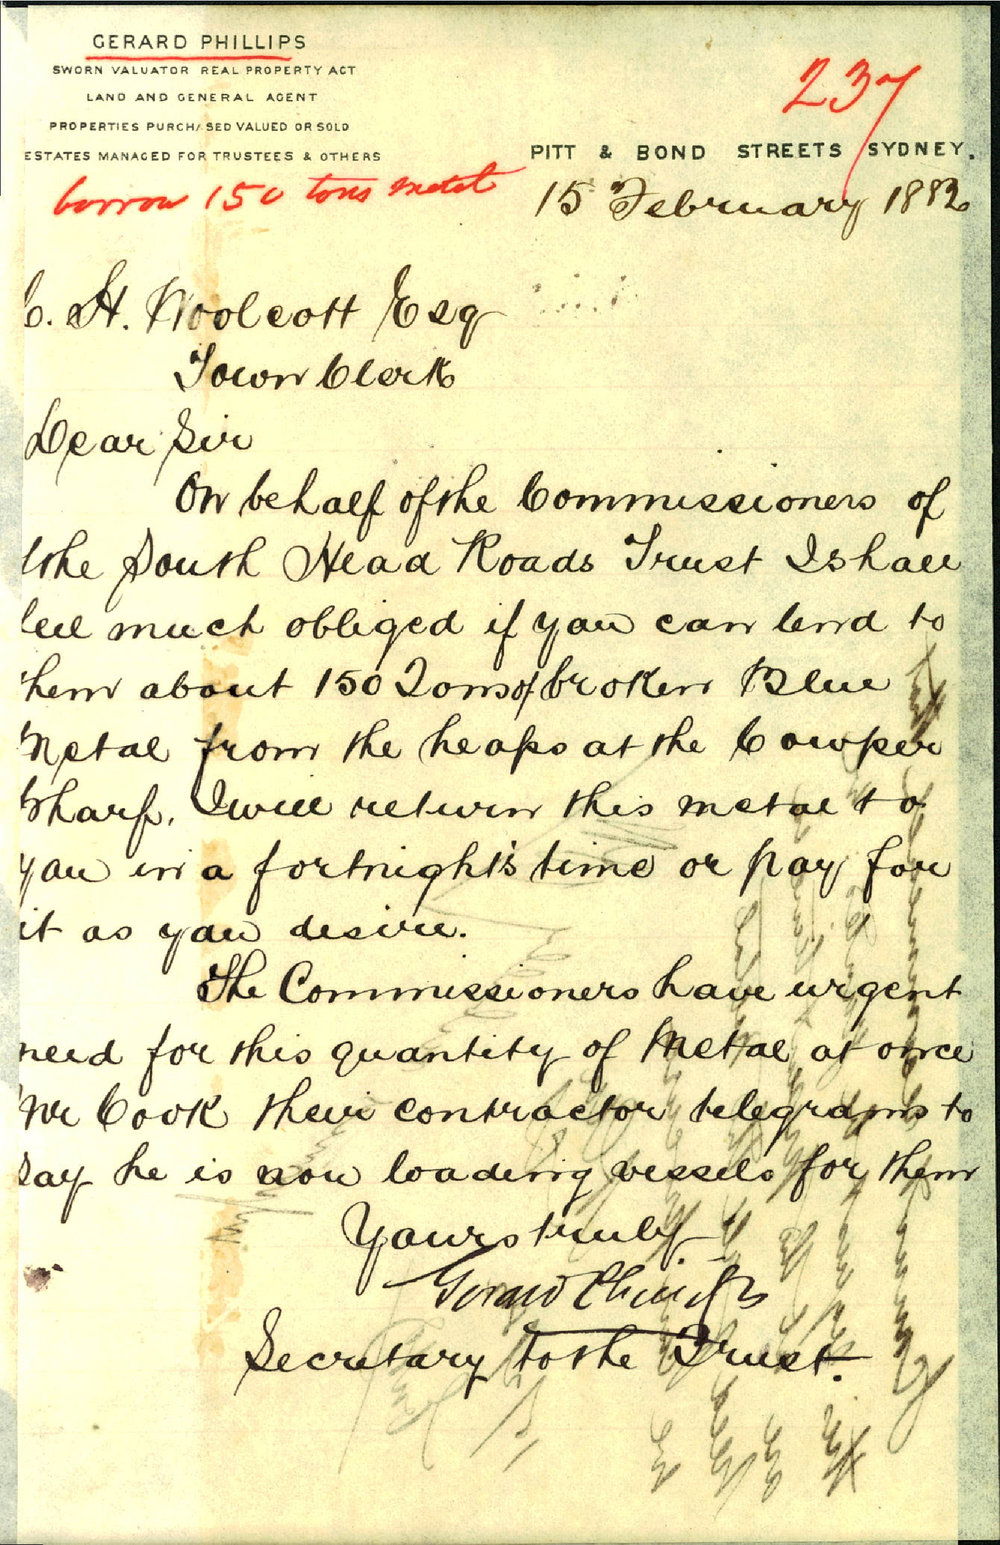 GERARD PHILLIPS
SWORN VALUATOR REAL PROPERTY ACT
LAND AND GENERAL AGENT
PROPERTIES PURCHASED VALUED OR SOLD
ESTATES MANAGED FOR TRUSTEES & OTHERS
237
PITT & BOND STREETS SYDNEY.
borrow 150 tons metal
15 February 1882
C. H. Woolcott Esq
Town Clerk
Dear Sir
On behalf of the Commissioners of
the South Head Roads Trust I shall
feel much obliged if you can lend to
them about 150 Tons of broken Blue
Metal from the heaps at the Cowper
Wharf. I will return this metal to
you in a fortnight's time or pay for
it as you desire.
The Commissioners have urgent
need for this quantity of Metal at once
Mr Cook their contractor telegrams to
say he is now loading vessels for them
Yours truly
Gerard Phillips
Secretary to the Trust.